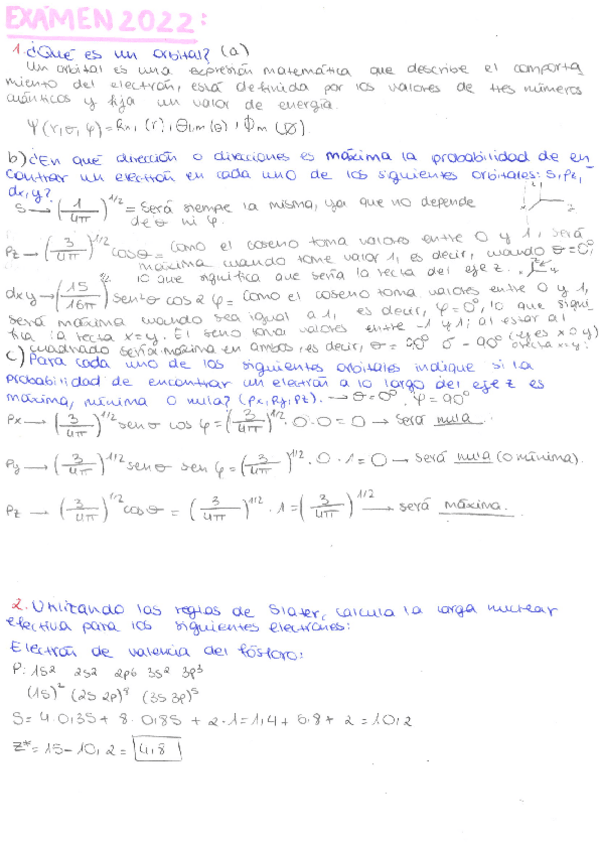 EXÁMEN 2022:
1. ¿Qué es un orbital? (a)
Un orbital es una expresión matemática que describe el comporta
miento del electrón, está definida por los valores de tres números
cuánticos y fija un valor de energía.
Ψ(r,θ,φ) = Rn,l (r), Θl,m (θ), Φm (Ø)
b) ¿En qué dirección o direcciones es máxima la probabilidad de en
contrar un electrón en cada uno de los siguientes orbitales: S, Pz,
dx,y?
S → (1/4π)^1/2 = Será siempre la misma, ya que no depende
de θ ni φ.
Pz → (3/4π)^1/2 cos θ = Como el coseno toma valores entre 0 y 1, será
máxima cuando tome valor 1, es decir, cuando θ = 0°,
lo que significa que sería la recta del eje z.
dxy → (15/16π)^1/2 sen²θ cos 2φ = Como el coseno toma valores entre 0 y 1,
será máxima cuando sea igual a 1, es decir, φ = 0°, lo que signi
fica la recta x=y. El seno toma valores entre -1 y 1; al estar al
cuadrado será máxima en ambos, es decir, θ = 90° ó -90°
c) Para cada uno de los siguientes orbitales indique si la
probabilidad de encontrar un electrón a lo largo del eje z es
máxima, mínima o nula? (Px, Py, Pz). → θ = 0°, φ = 90°
Px → (3/4π)^1/2 sen θ cos φ = (3/4π)^1/2 · 0 · 0 = 0 → será nula.
Py → (3/4π)^1/2 sen θ sen φ = (3/4π)^1/2 · 0 · 1 = 0 → será nula (o mínima).
Pz → (3/4π)^1/2 cos θ = (3/4π)^1/2 · 1 = (3/4π)^1/2 → será máxima.
2. Utilizando las reglas de Slater, calcula la carga nuclear
efectiva para los siguientes electrones:
Electrón de valencia del fósforo:
P: 1s² 2s² 2p6 3s² 3p³
(1s)² (2s 2p)⁸ (3s 3p)⁵
S = 4·0,35 + 8·0,85 + 2·1 = 1,4 + 6,8 + 2 = 10,2
Z* = 15 - 10,2 = 4,8